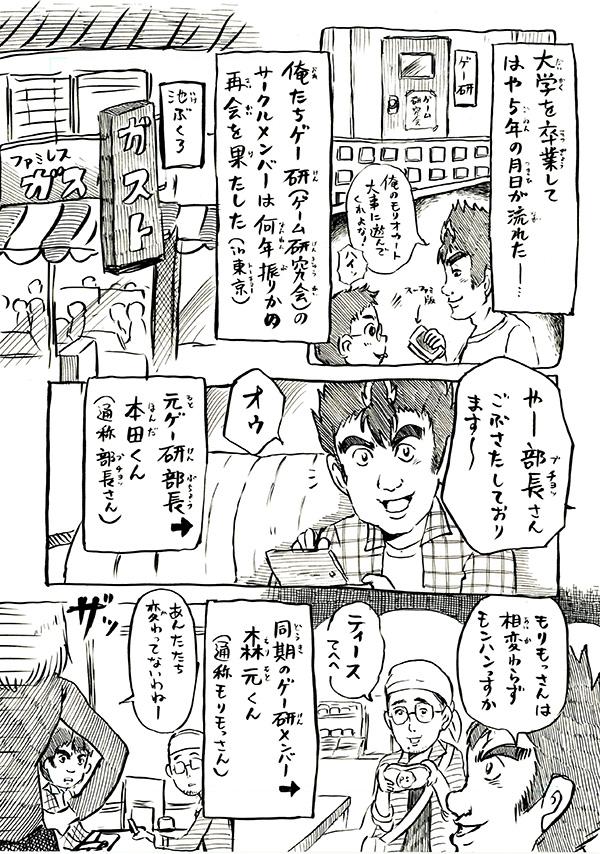 大学を卒業して
はや5年の月日が流れた――…
ゲー研
ゲーム
研究会
俺のもりオウト
大事に遊んで
くれよな!
ハイ!
スーファミ
版
俺たちゲー研(ゲーム研究会)の
サークルメンバーは何年振りかの
再会を果たした(in東京)
池ぶくろ
ガスト
ファミレス
ガス
やー部長さん
ごぶさたしており
ます～
オゥ
元ゲー研部長
本田くん
(通称部長さん)
もりもっさんは
相変わらず
モンハンっすか
ティース
てへへ
同期のゲー研メンバー
森元くん
(通称もりもっさん)
あんたたち
変わってないわねー
ザッ